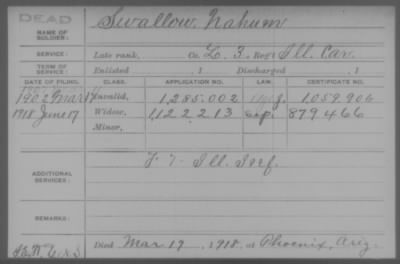 DEAD
NAME OF SOLDIER: Swallow, Nahum
SERVICE: Late rank, Co. L. 3 Reg't Ill. Cav.
TERM OF SERVICE: Enlisted , 1 Discharged , 1
DATE OF FILING. CLASS. APPLICATION NO. LAW. CERTIFICATE NO.
1902 Mar Invalid, 1,285,002 1,059,906
1918 June 17 Widow, 1122213 879466
Minor,
ADDITIONAL SERVICES: Ill. Inf.
REMARKS:
Died Mar. 17, 1918, at Phoenix, Ariz.